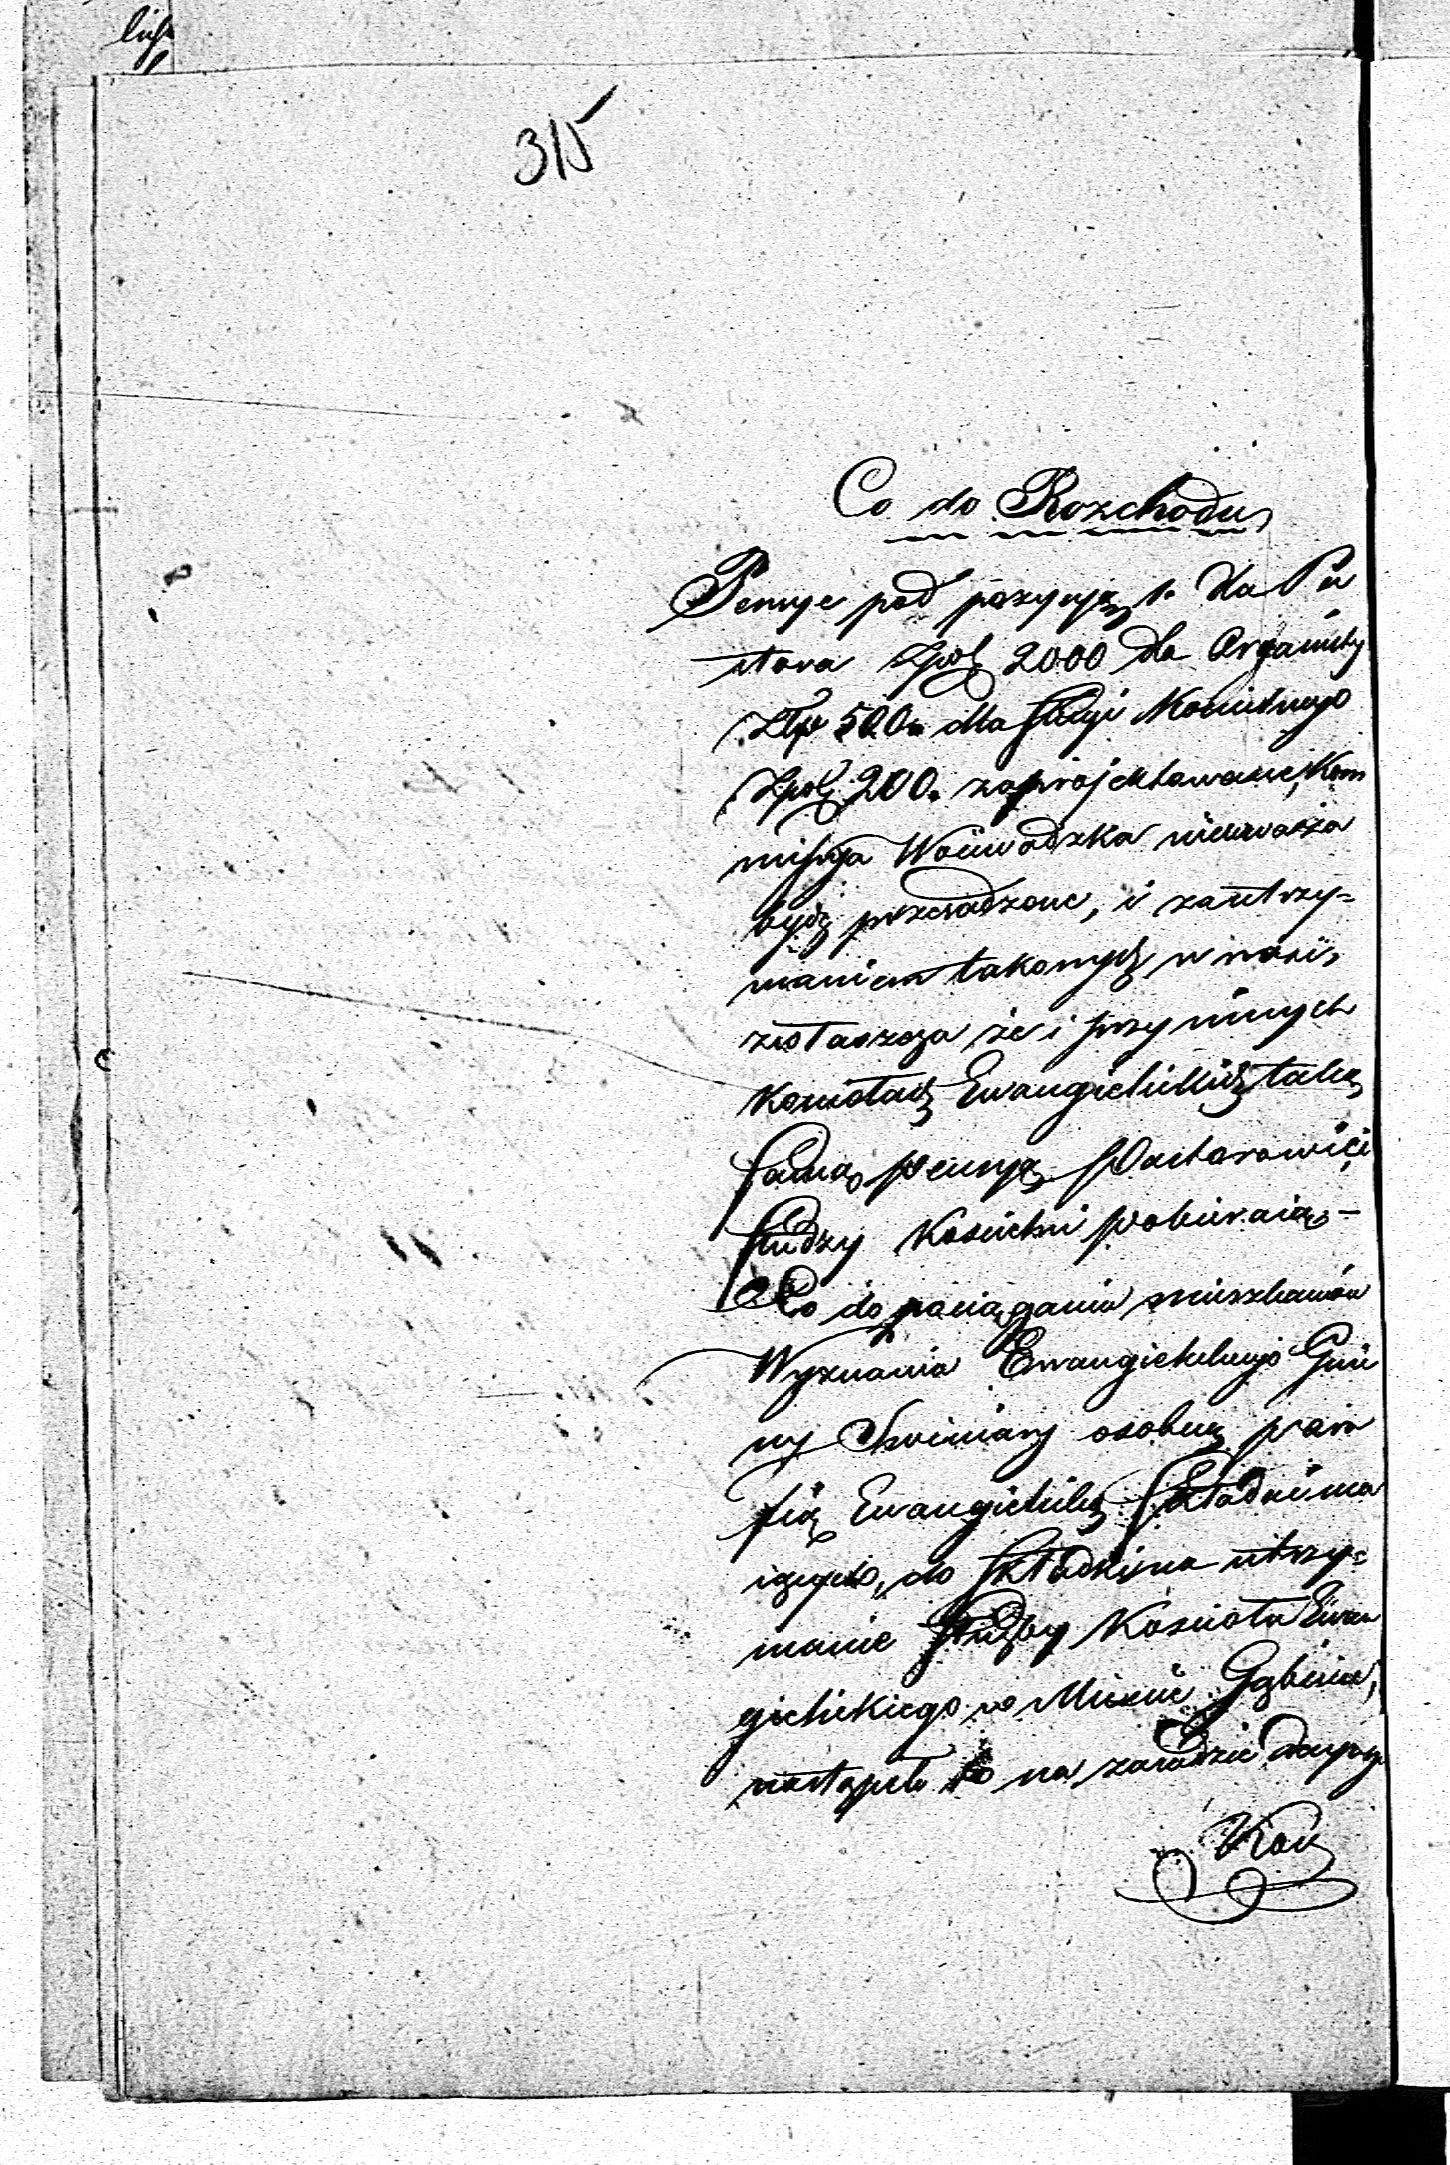 315
Co do Rozchodu
Pensye pod pozycyą 1. dla Pa
stora Zpol 2000 dla Organisty
Złp 500. dla sługi Kościelnego
Zpol 200. zaprojektowane, Kom
missya Woiewodzka nieuważa
bydź przesadzone, i za utrzy-
maniem takowych wnosi,
zwłaszcza że i przy innych
Kościołach Ewangielickich taką
samą pensyą Pastorowie i
słudzy Kościelni pobieraią -
Co do pociągania mieszkańców
Wyznania Ewangielickiego Gmi
ny Słowiany osobną para
fią Ewangielicką składać ma
iących, do składki na utrzy-
manie służby Kościoła Ewan
gielickiego w Mieście Gąbinie,
nastąpiło to na zasadzie decyzyi
Kom